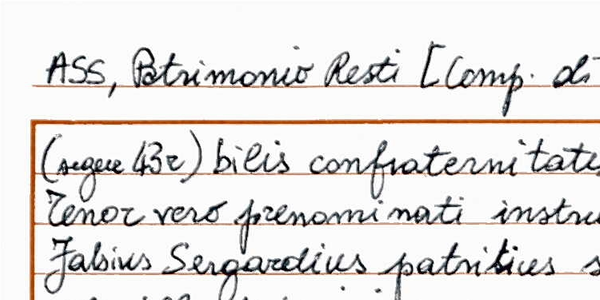 ASS, Patrimonio Resti [Comp. di
(segue 43r) bilis confraternitate
Tenor vero prenominati instru
Fabius Sergardius patritius s